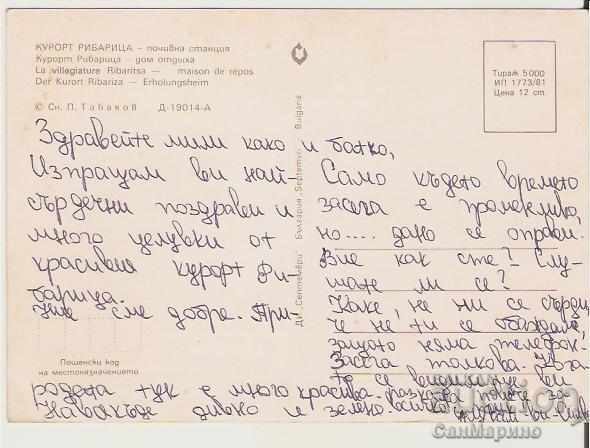 КУРОРТ РИБАРИЦА — почивна станция
Курорт Рибарица — дом отдыха
La villegiature Ribaritsa — maison de repos
Der Kurort Ribariza — Erholungsheim
© Сн. П. Табаков Д-19014-А
Тираж 5000
ИП 1773/81
Цена 12 ст
ДИ „Септември" България „Septemvri" Bulgaria
Здравейте мили како и батко,
Изпращам ви най-
сърдечни поздрави и
много целувки от
красивия курорт Ри-
барица.
Ние сме добре. При-
родата тук е много красива.
Навсякъде дивно и зелено.
Само където времето
засега е променливо,
но.... дано се оправи.
Вие как сте? Слу-
шате ли се?
Како, не ни се сърди,
че не ти се обаждаме,
защото няма телефон.
Засега толкова. Кога-
то се ви
разкаже
всичко
Пощенски код
на местоназначението
СанМарино